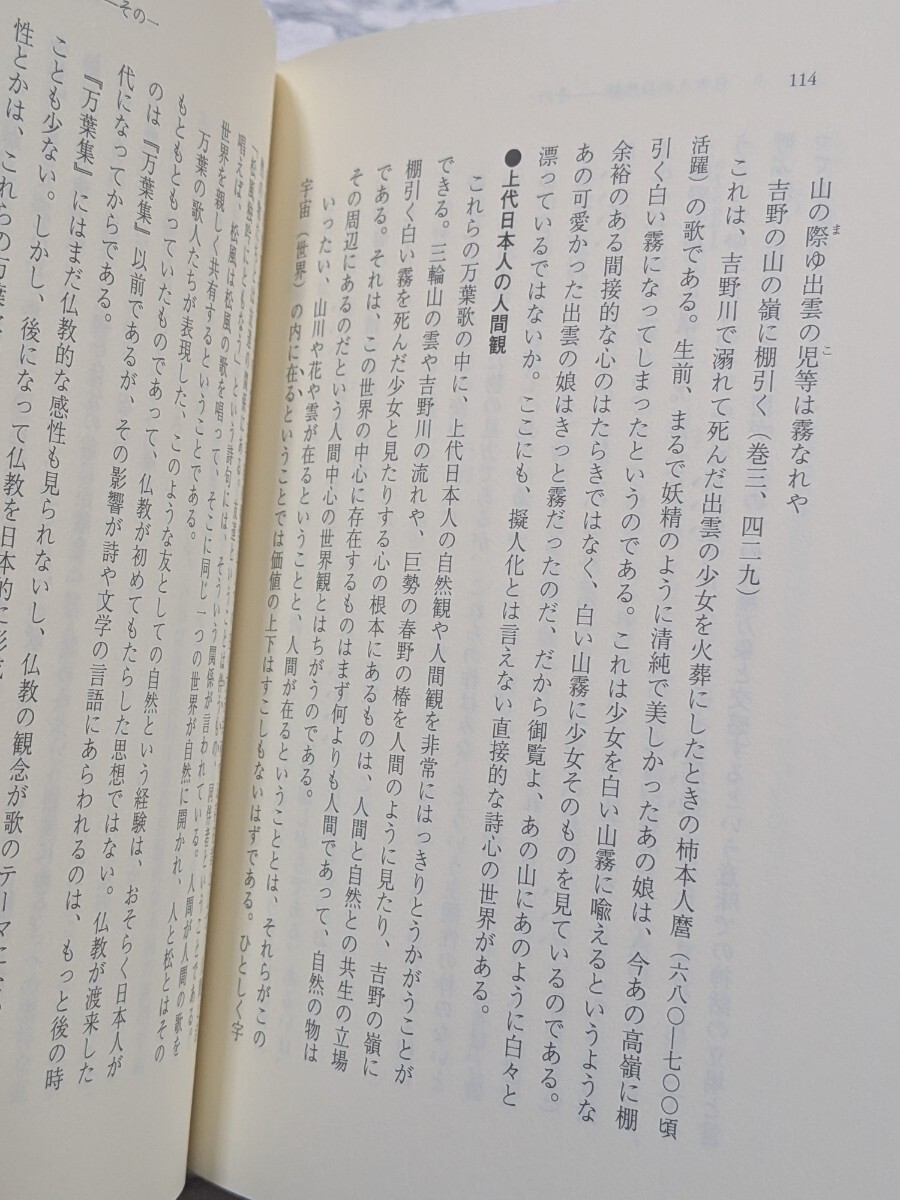 114
山の際ゆ出雲の児等は霧なれや
吉野の山の嶺に棚引く（巻三、四二九）
これは、吉野川で溺れて死んだ出雲の少女を火葬にしたときの柿本人麿（六八〇―七〇〇頃
活躍）の歌である。生前、まるで妖精のように清純で美しかったあの娘は、今あの高嶺に棚
引く白い霧になってしまったというのである。これは少女を白い山霧に喩えるというような
余裕のある間接的な心のはたらきではなく、白い山霧に少女そのものを見ているのである。
あの可愛かった出雲の娘はきっと霧だったのだ、だから御覧よ、あの山にあのように白々と
漂っているではないか。ここにも、擬人化とは言えない直接的な詩心の世界がある。
●上代日本人の人間観
これらの万葉歌の中に、上代日本人の自然観や人間観を非常にはっきりとうかがうことが
できる。三輪山の雲や吉野川の流れや、巨勢の春野の椿を人間のように見たり、吉野の嶺に
棚引く白い霧を死んだ少女と見たりする心の根本にあるものは、人間と自然との共生の立場
である。それは、この世界の中心に存在するものはまず何よりも人間であって、自然の物は
その周辺にあるのだという人間中心の世界観とはちがうのである。
いったい、山川や花や雲が在るということと、人間が在るということとは、それらがこの
宇宙（世界）の内に在るということでは価値の上下はすこしもないはずである。ひとしく宇
―その一
「松風橋吟にともなう」という詩句には、そういう関係が言われている。人間が人間の歌を
唱えば、松風は松風の歌を唱って、そこに同じ一つの世界が自然に開かれ、人と松とはその
世界を親しく共有するということである。
万葉の歌人たちが表現した、このような友としての自然という経験は、おそらく日本人が
もともともっていたものであって、仏教が初めてもたらした思想ではない。仏教が渡来した
のは『万葉集』以前であるが、その影響が詩や文学の言語にあらわれるのは、もっと後の時
代になってからである。
『万葉集』にはまだ仏教的な感性も見られないし、仏教の観念が歌のテーマに
ことも少ない。しかし、後になって仏教を日本的に
性とかは、これらの万葉